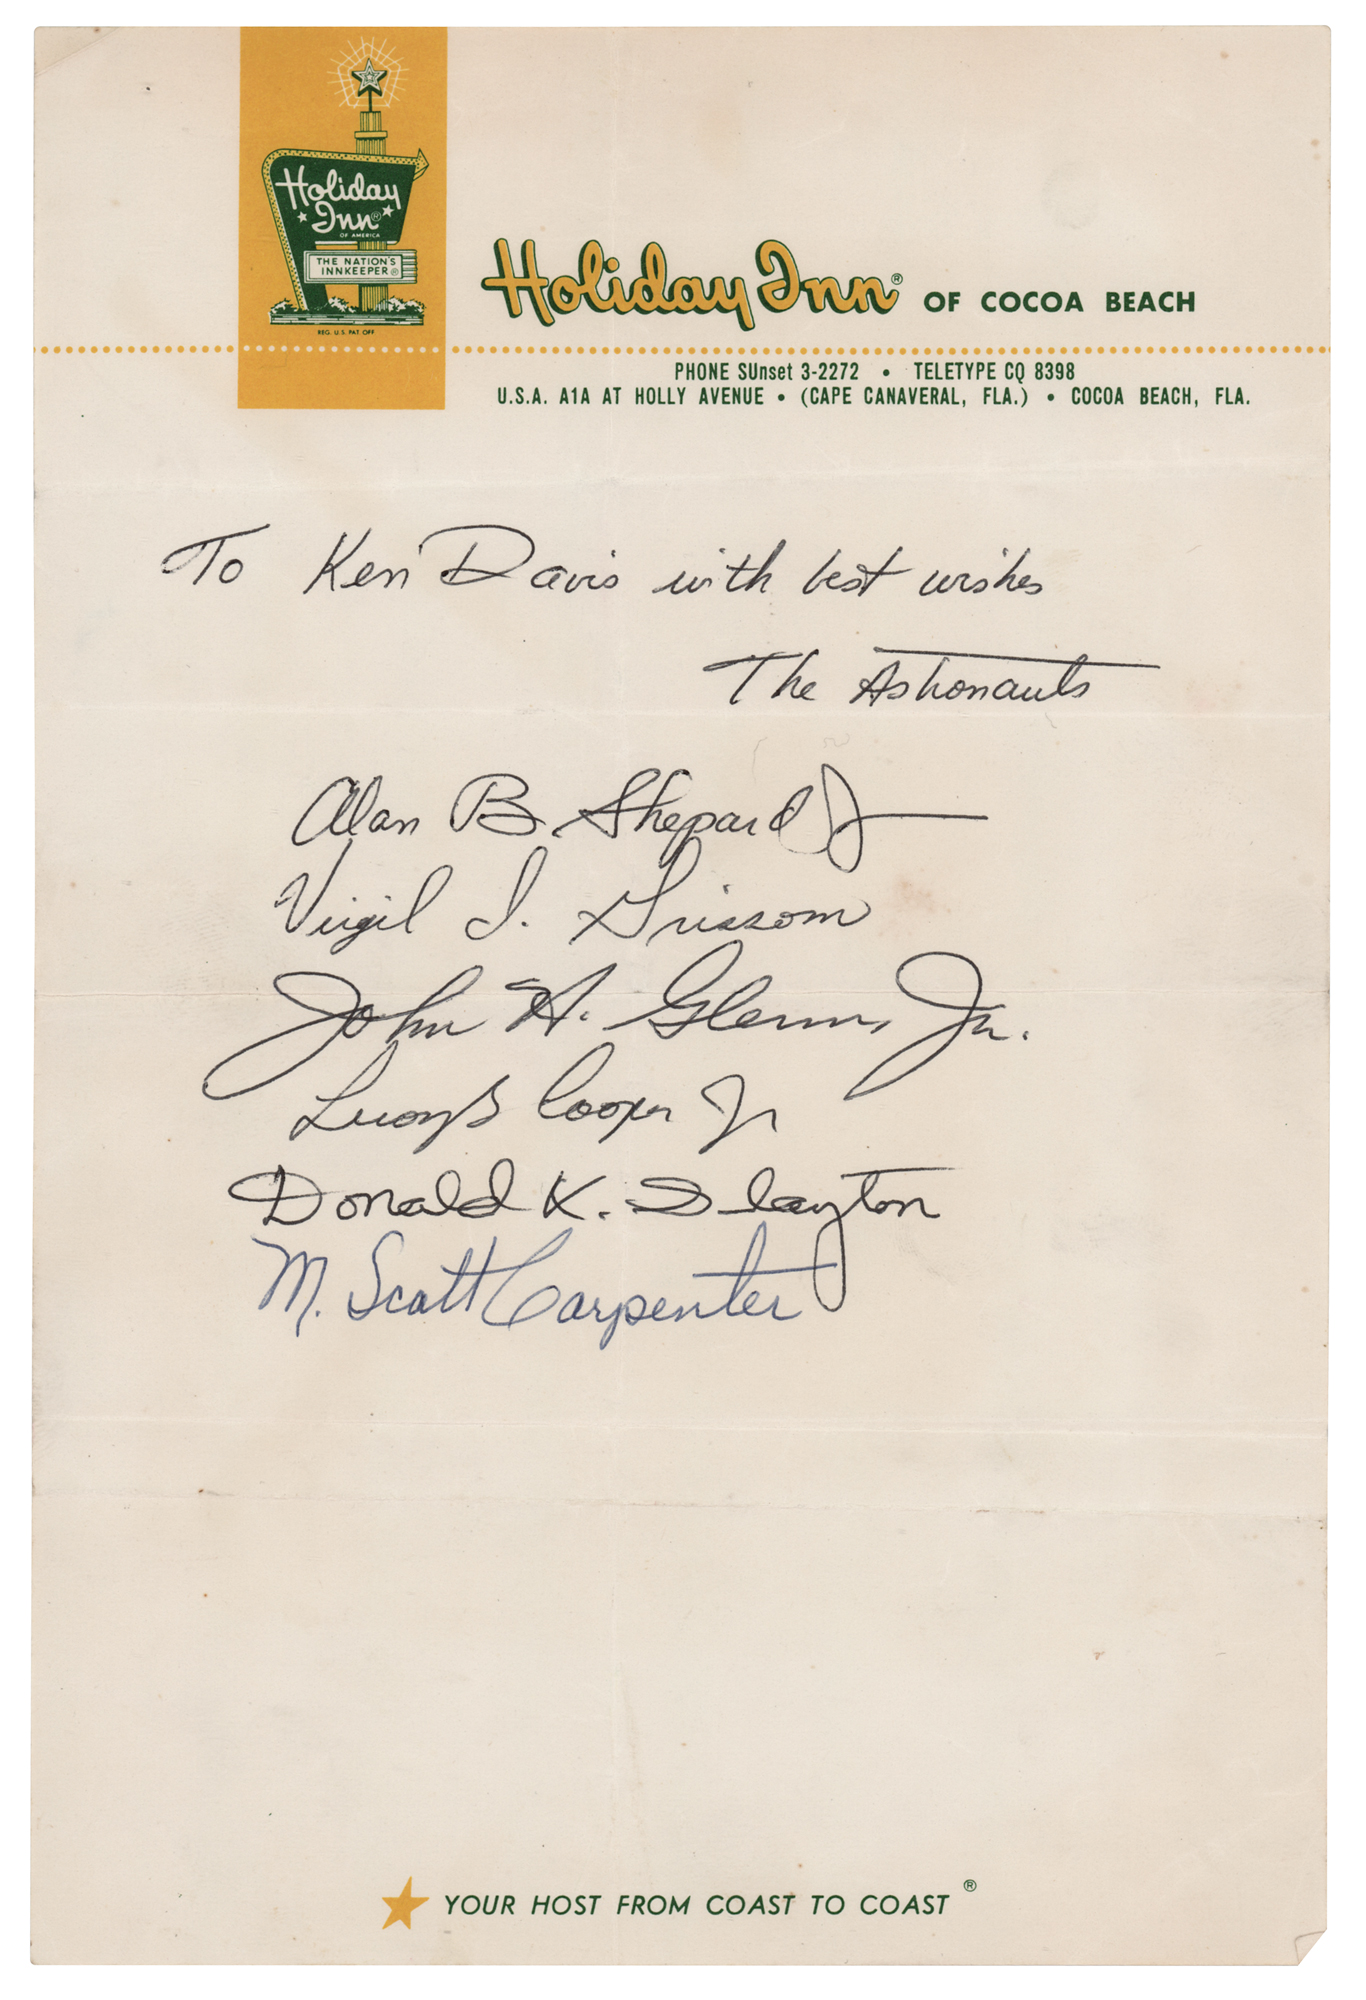 Holiday
Inn®
OF AMERICA
THE NATION'S
INNKEEPER®
REG. U.S. PAT. OFF
Holiday Inn® OF COCOA BEACH
PHONE SUnset 3-2272 • TELETYPE CQ 8398
U.S.A. A1A AT HOLLY AVENUE • (CAPE CANAVERAL, FLA.) • COCOA BEACH, FLA.
To Ken Davis with best wishes
The Astronauts
Alan B. Shepard Jr
Virgil I. Grissom
John H. Glenn, Jr.
Leroy G Cooper Jr
Donald K. Slayton
M. Scott Carpenter
YOUR HOST FROM COAST TO COAST ®